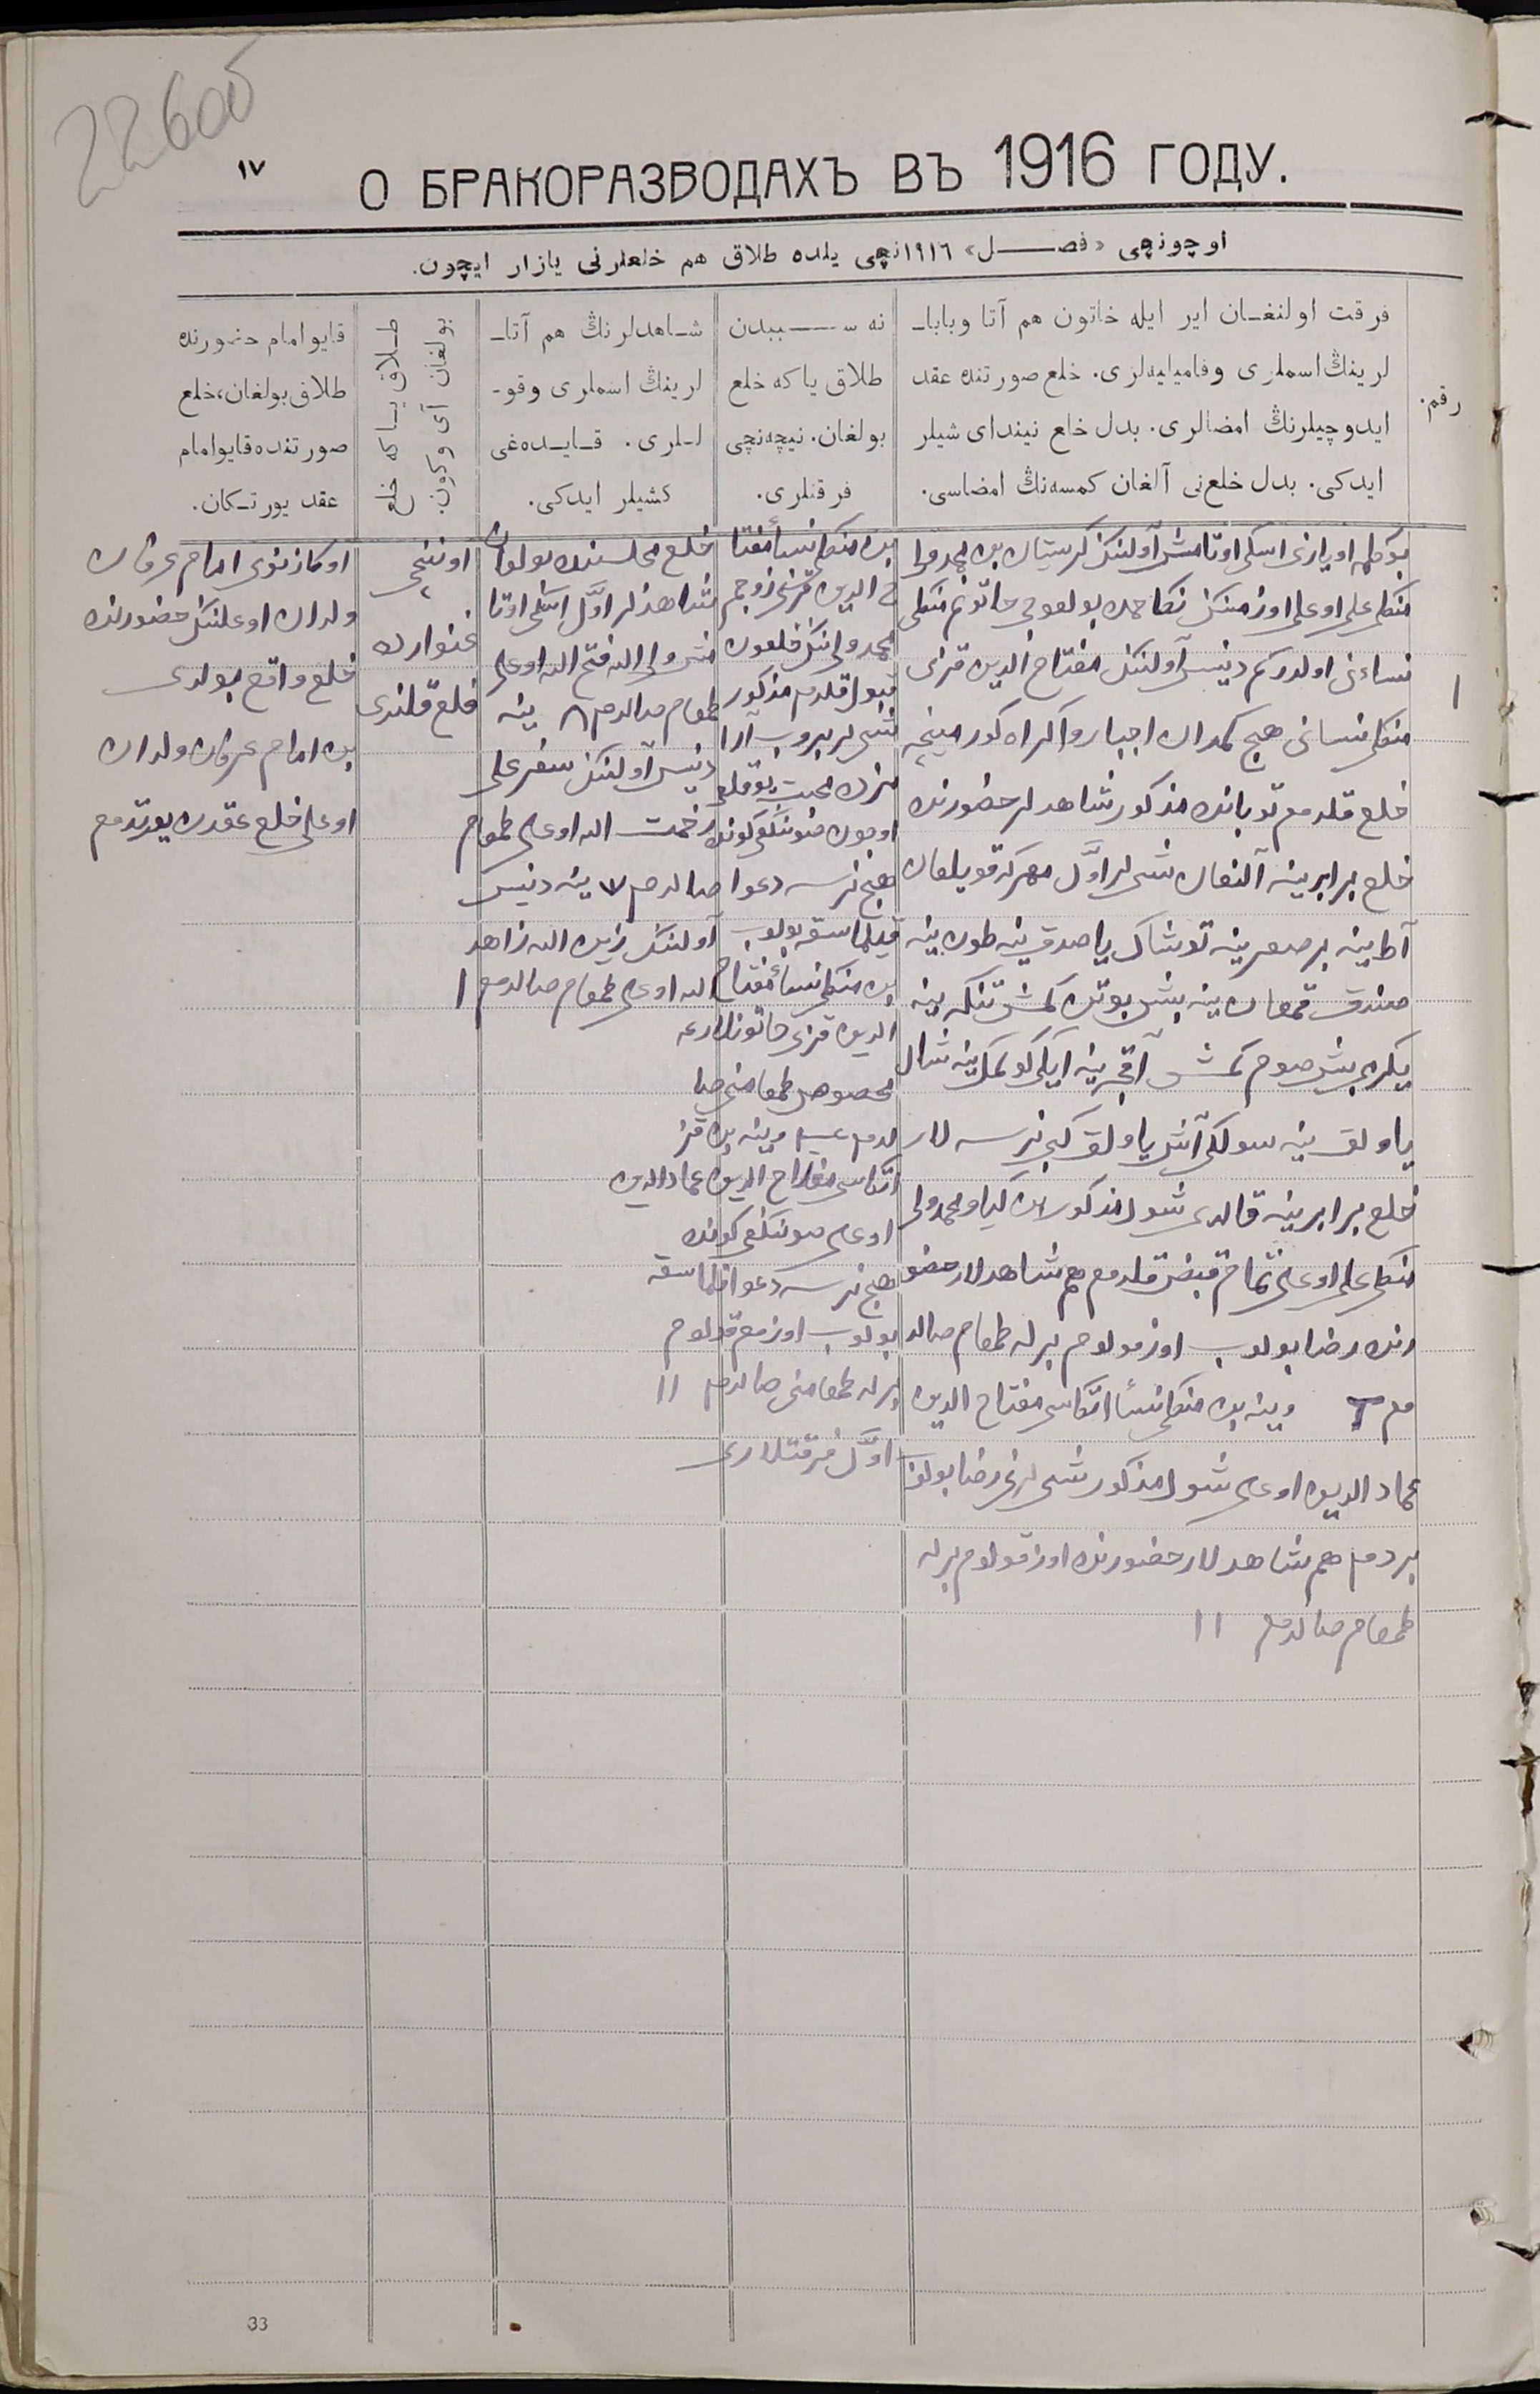 22600
١٧
О БРАКОРАЗВОДАХЪ ВЪ 1916 ГОДУ.
اوچونچی «فصل» ١٩١٦نچی یلده طلاق هم خلعلرنی یازار ایچون.
رقم.
فرقت اولنغان ایر ایله خاتون هم آتا وبابا-
لرینڭ اسملری وفامیلیه‌لری. خلع صورتنده عقد
ایدوچیلرنڭ امضالری. بدل خلع نیندای شیلر
ایدکی. بدل خلع‌نی آلغان کمسه‌نڭ امضاسی.
نه سببدن
طلاق یا که خلع
بولغان. نیچه‌نچی
فرقتلری.
شاهدلرنڭ هم آتا-
لرینڭ اسملری وقو-
للری. قایده‌غی
کشیلر ایدکی.
طلاق یا که خلع
بولغان آی وکون.
قایو امام حضورنده
طلاق بولغان، خلع
صورتنده قایو امام
عقد یورتکان.
١
منکلی علی اوغلی اوزمنڭ نکاحمده بولغوچی خاتونم منکلی
نساءنی اولدرکم دنیس آولننڭ مفتاح الدین قزی
منکلی نسانی هیچ کمدان اجبار واکراه کورمینچه
خلع قلدم تو باننده مذکور شاهدلر حضورنده
خلع برابرینه آلنغان شی لر اوّل مهرکه قویلغان
صندق قمغان ینه بش بوتن کمش تنکه ینه
یکرمی بش صوم کمش آقچه ینه ایکی کولمک ینه شال
یاولق ینه سولکی آش یاولق کبی نرسه لار
خلع برابرینه قالدی شول مذکور
منکلی علی اوغلی تمام قبض قلدم هم شاهدلار حضو
رنده رضا بولوب اوز قولوم برله طمغام صالد
م وینه بن منکلی نسأ اتکاسی مفتاح الدین
عماد الدین اوغلی شول مذکور شی لرنی رضا بولوب
بردم هم شاهدلار حضورنده اوز قولوم برله
طمغام صالدم ١١
بن منکلی نسأ مفتا
ح الدین قزی زوجم
محمدولی ننڭ خلعون
قبول قلدم مذکور
شی لر بیروب آرا
مزده محبت یوقلغی
اوچون صونکغی کونده
هیچ نرسه دعوا
قیلماسقه بولوب
بن منکلی نسأ مفتاح
الدین قزی خاتونلارغه
مخصوص طمغامنی صا
لدم وینه بن قز
اتکاسی مفتاح الدین عماد الدین
اوغلی صونکغی کونده
هیچ نرسه دعوا قلماسقه
بولوب اوزم قولوم
برله طمغامنی صالدم ١١
اوّل فرقتلاری
خلع مجلسنده بولغان
شاهدلر اوّل اسکی اوتا
مش ولی الله فتح الله اوغلی
طمغام صالدم ٨ ینه
دنیس آولننڭ سفرعلی
رحمت الله اوغلی طمغام
صالدم ٧ ینه دنیس
آولننڭ زین الله زاهد
الله اوغلی طمغام صالدم ١
اوننچی
غنوارده
خلع قلندی
اوکازنوی امام عرفان
ولدان اوغلننڭ حضورنده
خلع واقع بولدی
بن امام عرفان ولدان
اوغلی خلع عقدن یورتدم
33